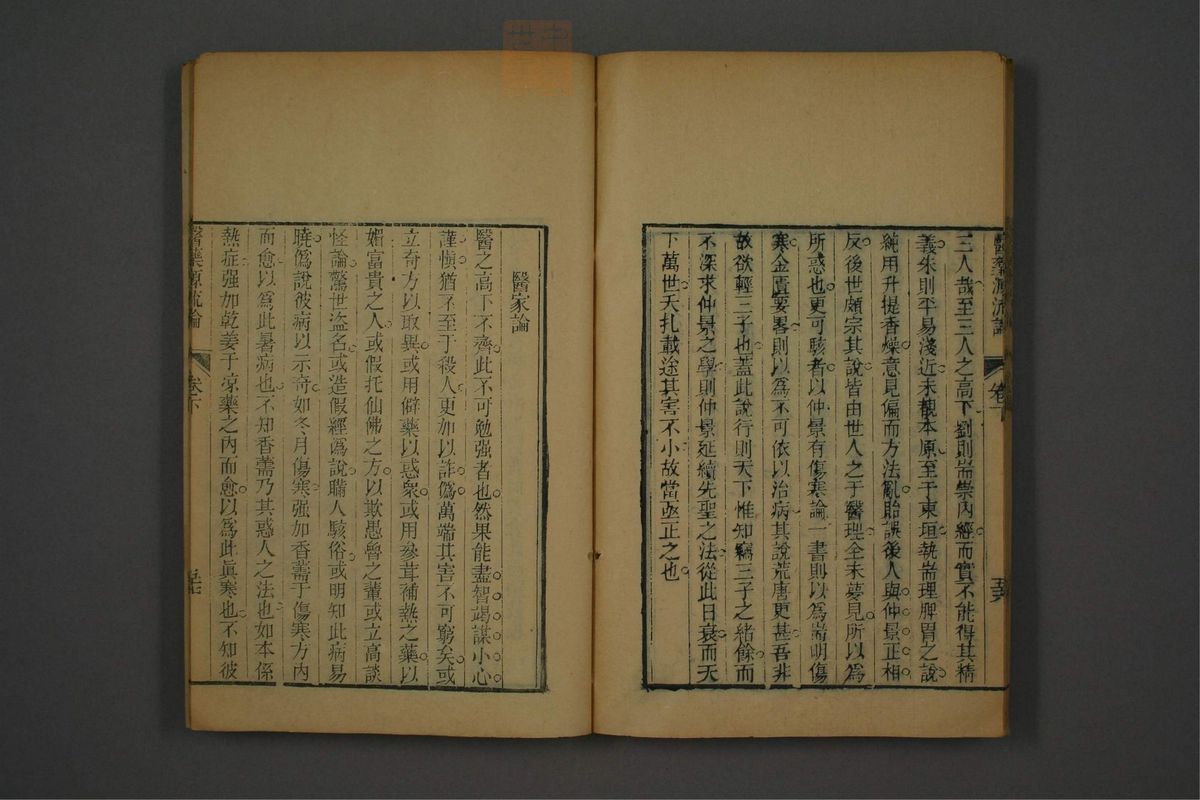 醫藥源流論 卷下 五六
三人哉至三人之高下劉則耑崇內經而實不能得其精
義朱則平易淺近未覩本原至于東垣執耑理脾胃之說
純用升提香燥意見偏而方法亂貽誤後人與仲景正相
反後世頗宗其說皆由世人之于醫理全未夢見所以為
所惑也更可駭者以仲景有傷寒論一書則以為耑明傷
寒金匱要畧則以為不可依以治病其說荒唐更甚吾非
故欲輕三子也蓋此說行則天下惟知竊三子之緒餘而
不深求仲景之學則仲景延續先聖之法從此日衰而天
下萬世夭扎載途其害不小故當亟正之也
醫家論
醫之高下不齊此不可勉强者也然果能盡智竭謀小心
謹慎猶不至于殺人更加以詐僞萬端其害不可窮矣或
立奇方以取異或用僻藥以惑衆或用參茸補熱之藥以
媚富貴之人或假托仙佛之方以欺愚魯之輩或立高談
怪論驚世盜名或造假經僞說瞞人駭俗或明知此病易
曉僞說彼病以示奇如冬月傷寒强加香薷于傷寒方內
而愈以為此暑病也不知香薷乃其惑人之法也如本係
熱症强加乾姜于凉藥之內而愈以為此眞寒也不知彼
醫藥源流論 卷下